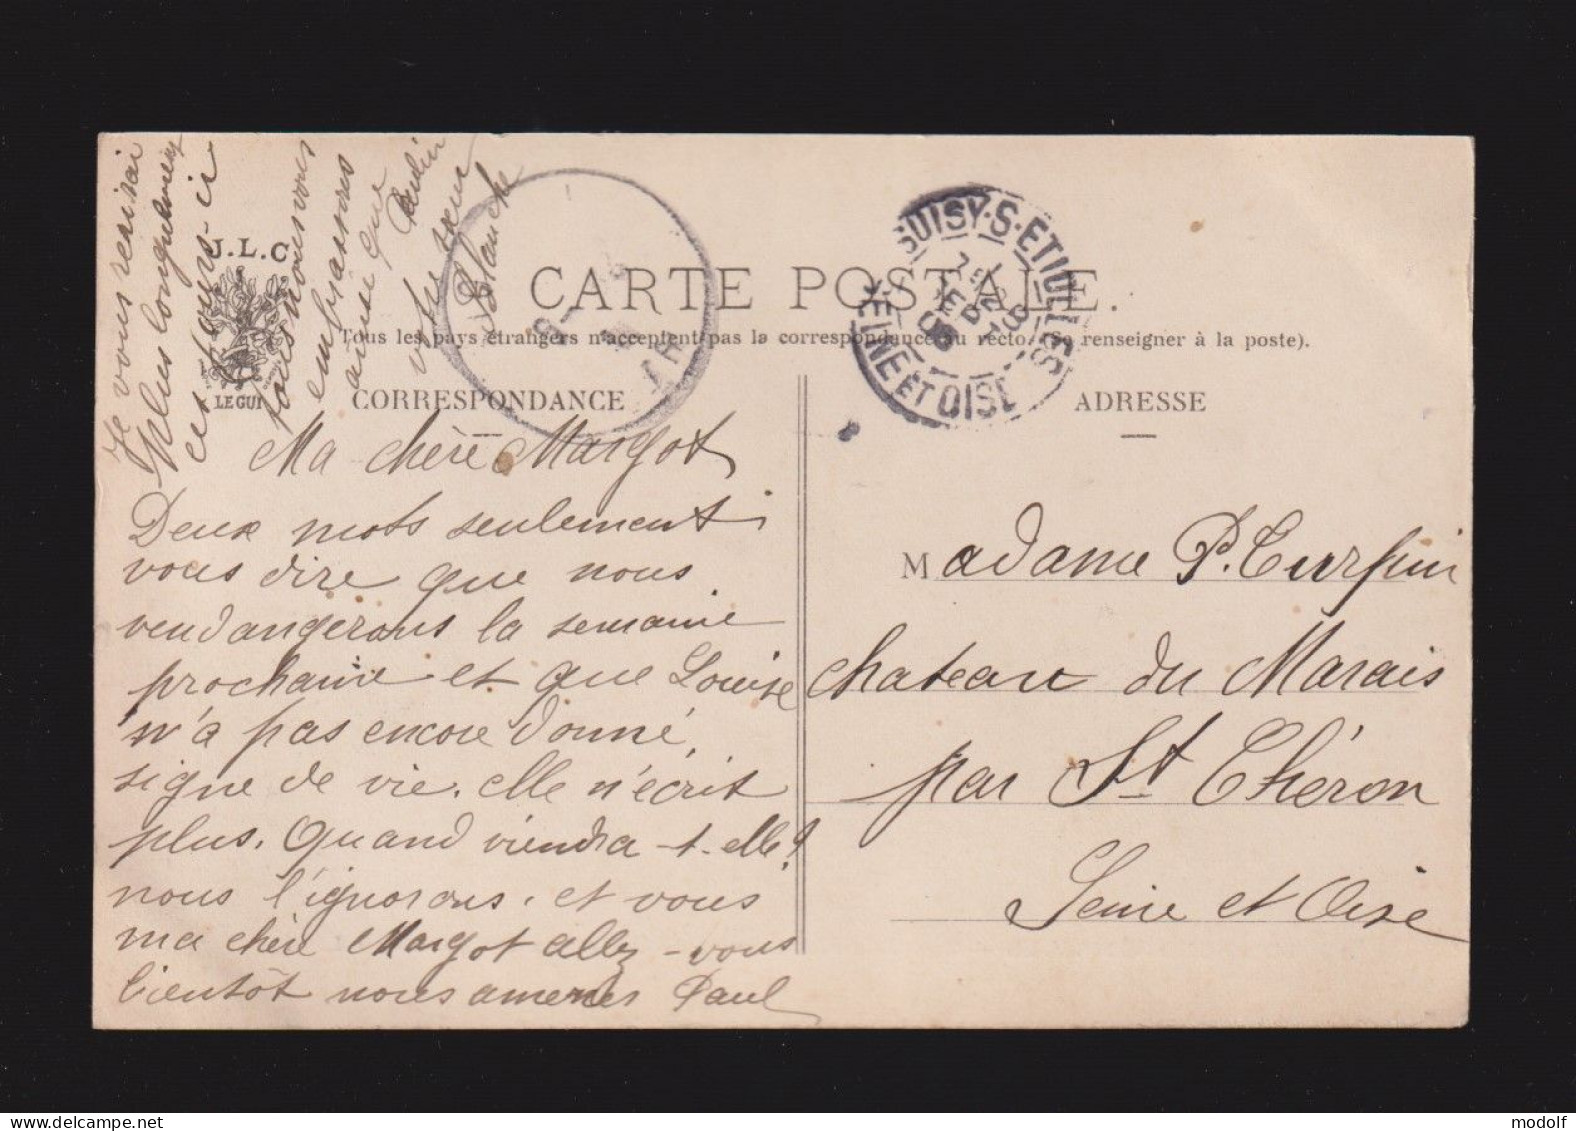 CARTE POSTALE.
Tous les pays étrangers n'acceptent pas la correspondance au recto (Se renseigner à la poste).
J.L.C
LE GUI
CORRESPONDANCE
Ma chère Margot
Deux mots seulement
vous dire que nous
vendangerons la semaine
prochaine et que Louise
n'a pas encore donné
signe de vie. elle n'écrit
plus. Quand viendra-t-elle?
nous l'ignorons. et vous
ma chère Margot allez-vous
bientôt nous amener Paul
Je vous
plus longuement
ces jours-ci
tous nous vous
embrassons
ainsi que
votre sœur
Blanche
SOISY-S-ETIOLLES
SEINE ET OISE
ADRESSE
Madame P. Turpin
chateau du Marais
par St Chéron
Seine et Oise
modolf